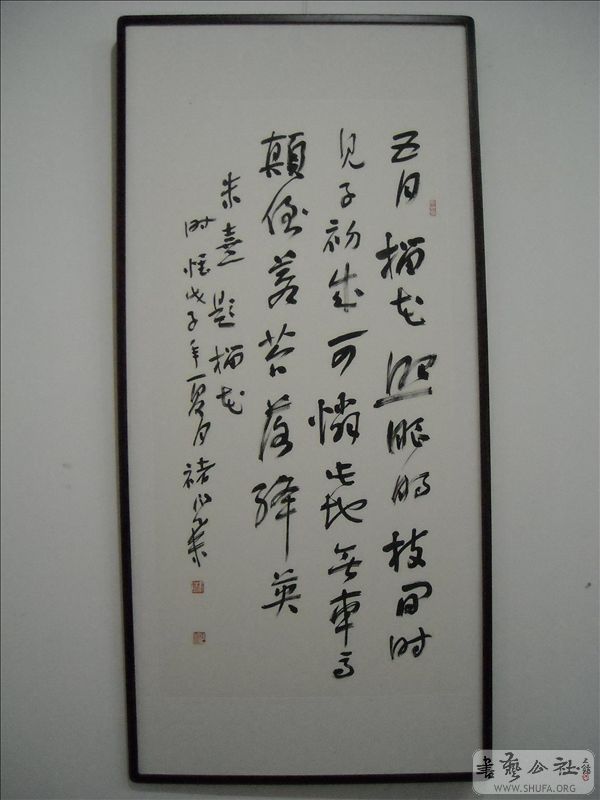 五月榴花照眼明枝间时
见子初成可憐此地无车马
颠倒苍苔落绛英
朱熹题榴花
时惟戊子年夏月 褚
書藝公社
WWW.SHUFA.ORG